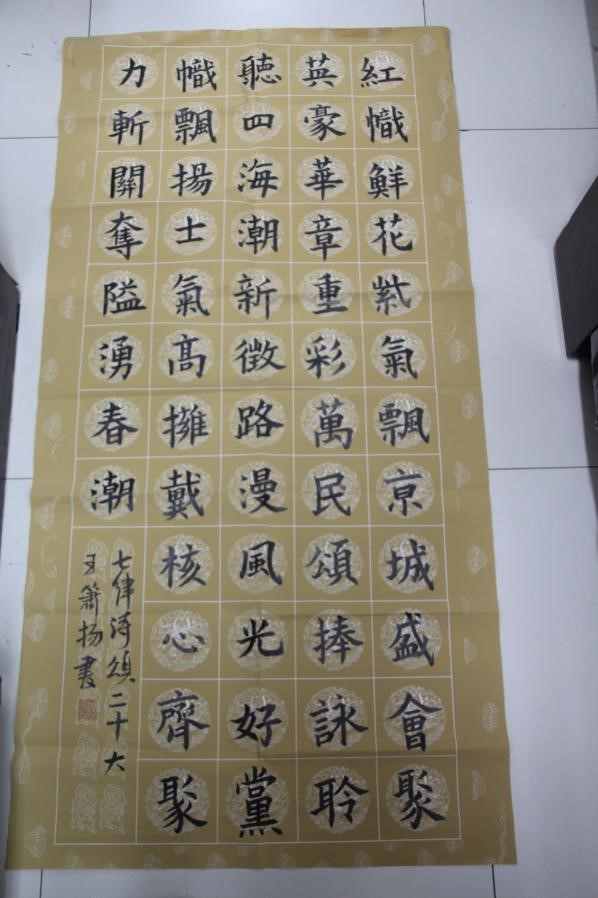 紅幟鮮花紫氣飄亰城盛會聚
英豪華章重彩萬民頌捧詠聆
聽四海潮新徴路漫風光好黨
幟飄揚士氣高擁戴核心齊聚
力斬關奪隘湧春潮
七律诗頌二十大
王簫扬書